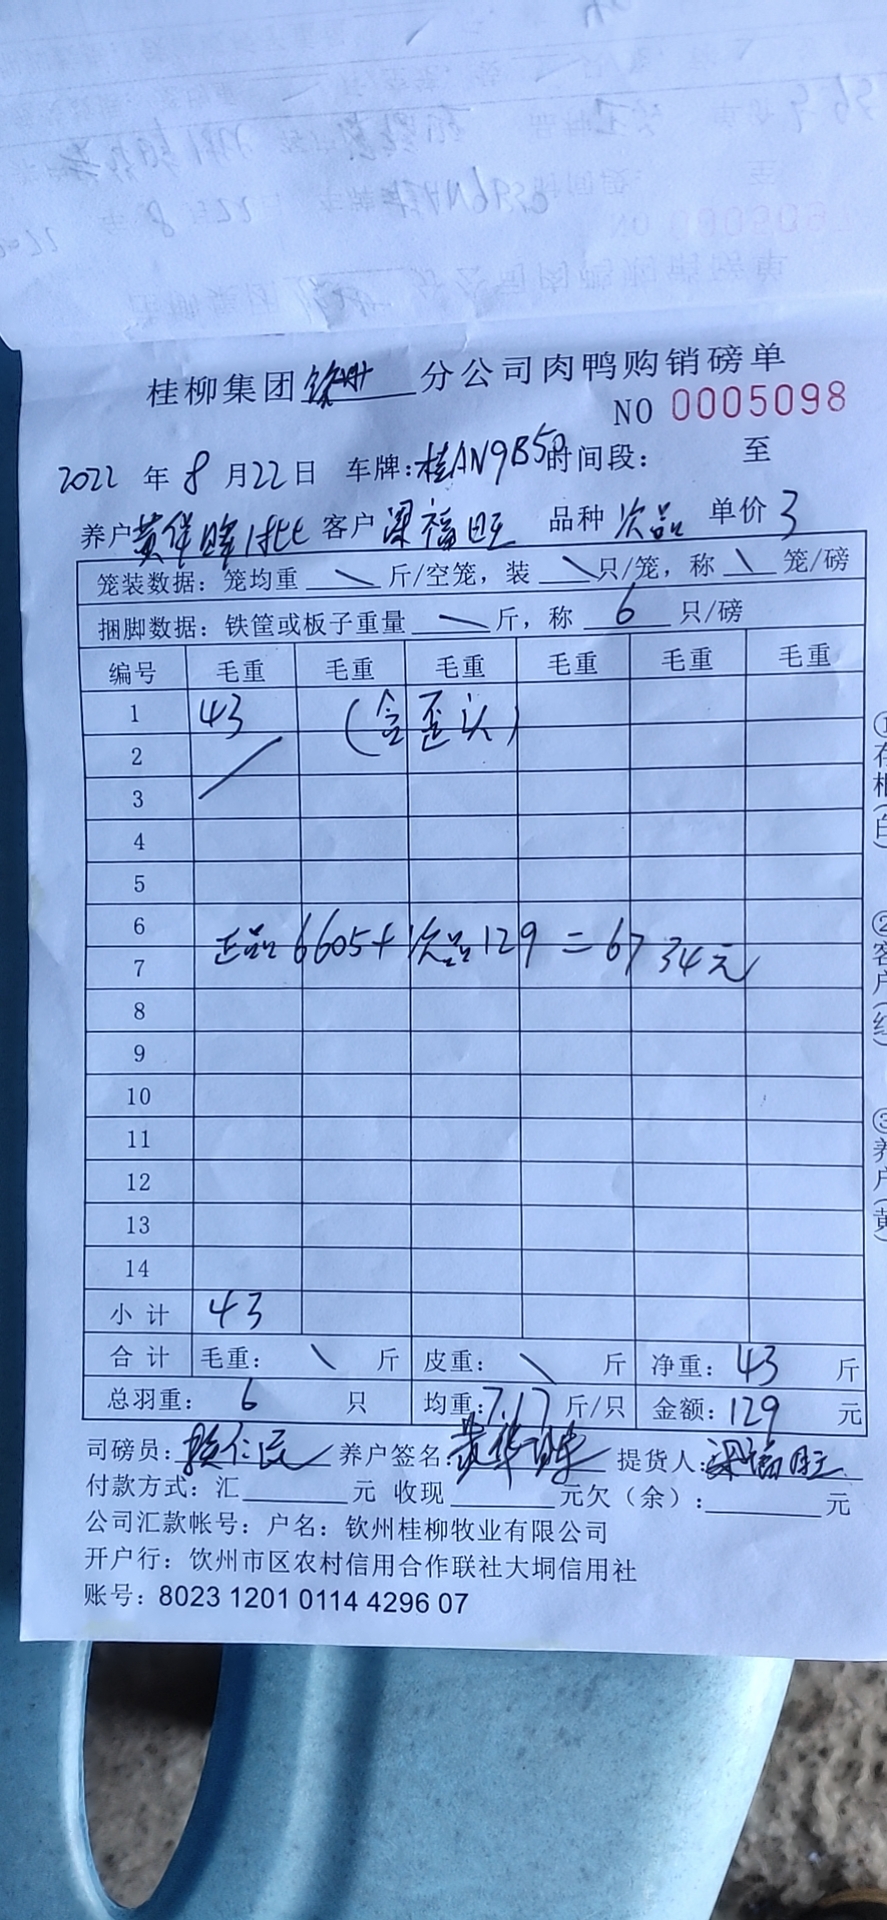 桂柳集团钦州分公司肉鸭购销磅单
NO 0005098
2022年8月22日 车牌:桂AN9B50时间段: 至
养户黄华晖 客户梁福旺 品种次品 单价3
笼装数据:笼均重\斤/空笼,装\只/笼,称\笼/磅
捆脚数据:铁筐或板子重量\斤,称6只/磅
编号 毛重 毛重 毛重 毛重 毛重 毛重
1 43 (含歪头)
2
3
4
5
6
正品6605+次品129=6734元
7
8
9
10
11
12
13
14
小计 43
合计 毛重:\斤 皮重:\斤 净重:43斤
总羽重:6只 均重:7.17斤/只 金额:129元
司磅员:赖仁民 养户签名:黄华晖 提货人:梁福旺
付款方式:汇______元 收现______元欠(余):______元
公司汇款帐号:户名:钦州桂柳牧业有限公司
开户行:饮州市区农村信用合作联社大垌信用社
账号:8023 1201 0114 4296 07
②客户(红)
养户(黄)